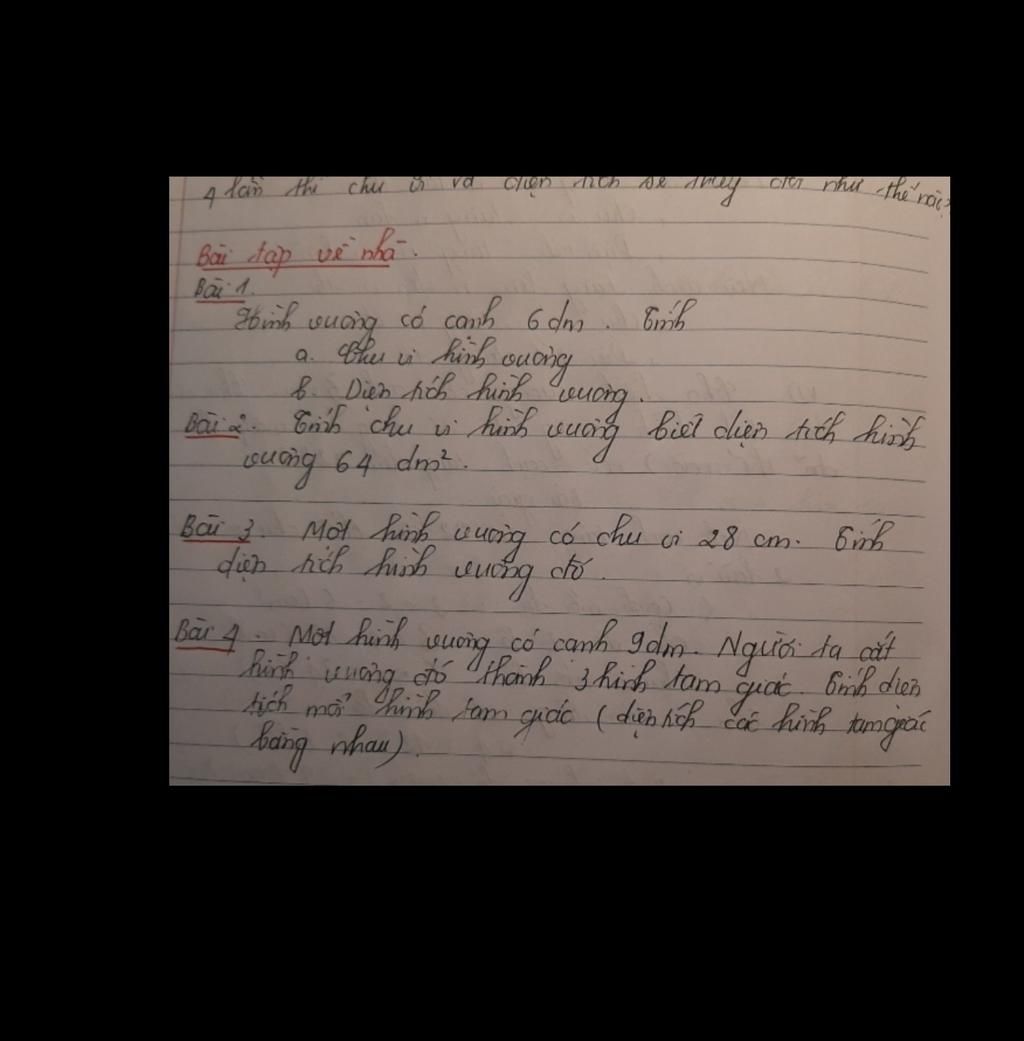 4 lần thì chu vi và diện tích sẽ thay đổi như thế nào?
Bài tập về nhà.
Bài 1.
Hình vuông có cạnh 6 dm. Tính
a. Chu vi hình vuông
b. Diện tích hình vuông.
Bài 2. Tính chu vi hình vuông biết diện tích hình
vuông 64 dm².
Bài 3. Một hình vuông có chu vi 28 cm. Tính
diện tích hình vuông đó.
Bài 4. Một hình vuông có cạnh 9dm. Người ta cắt
hình vuông đó thành 3 hình tam giác. Tính diện
tích mỗi hình tam giác (diện tích các hình tam giác
bằng nhau).